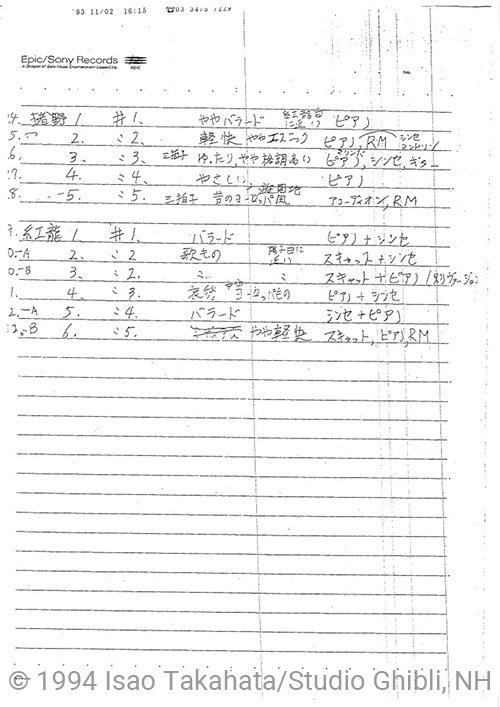 '93 11/02 16:15 ☎03 3475 7229
Epic/Sony Records
A Division of Sony Music Entertainment (Japan) Inc. epic
No.
紅龍#1
に近い
14. 猪野 1 #1、 ややバラード ピアノ
5. 〃 2. 〃 2、 軽快 ややエスニック ピアノ, RM シンセ マンドリン
6. 3、 〃 3、 三拍子 ゆったり、やや格調高い ピアノ、シンセ、ギター
7. 4、 〃 4、 やさしい、 ピアノ
8. 5、 〃 5、 三拍子 昔のヨーロッパ風 アコーディオン、RM
紅龍 1 #1、 バラード ピアノ+シンセ
0.-A 2、 〃 2 歌もの に近い スキャット+シンセ
0.-B 3、 〃 2. 〃 〃 スキャット+ピアノ
1. 4、 〃 3. 哀愁 やや ヨーロッパもの ピアノ+シンセ
2.-A 5、 〃 4、 バラード シンセ+ピアノ
2.-B 6. 〃 5、 やや軽快 スキャット, ピアノ, RM
© 1994 Isao Takahata/Studio Ghibli, NH